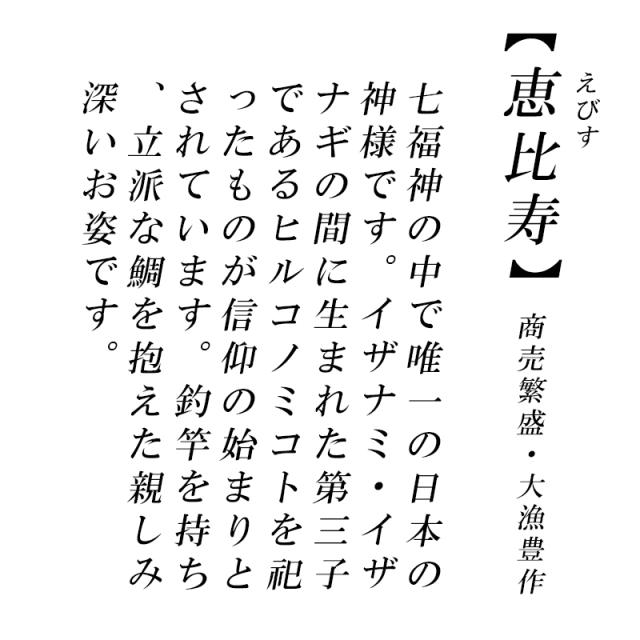 えびす
【恵比寿】 商売繁盛・大漁豊作
七福神の中で唯一の日本の
神様です。イザナミ・イザ
ナギの間に生まれた第三子
であるヒルコノミコトを祀
ったものが信仰の始まりと
されています。釣竿を持ち
、立派な鯛を抱えた親しみ
深いお姿です。